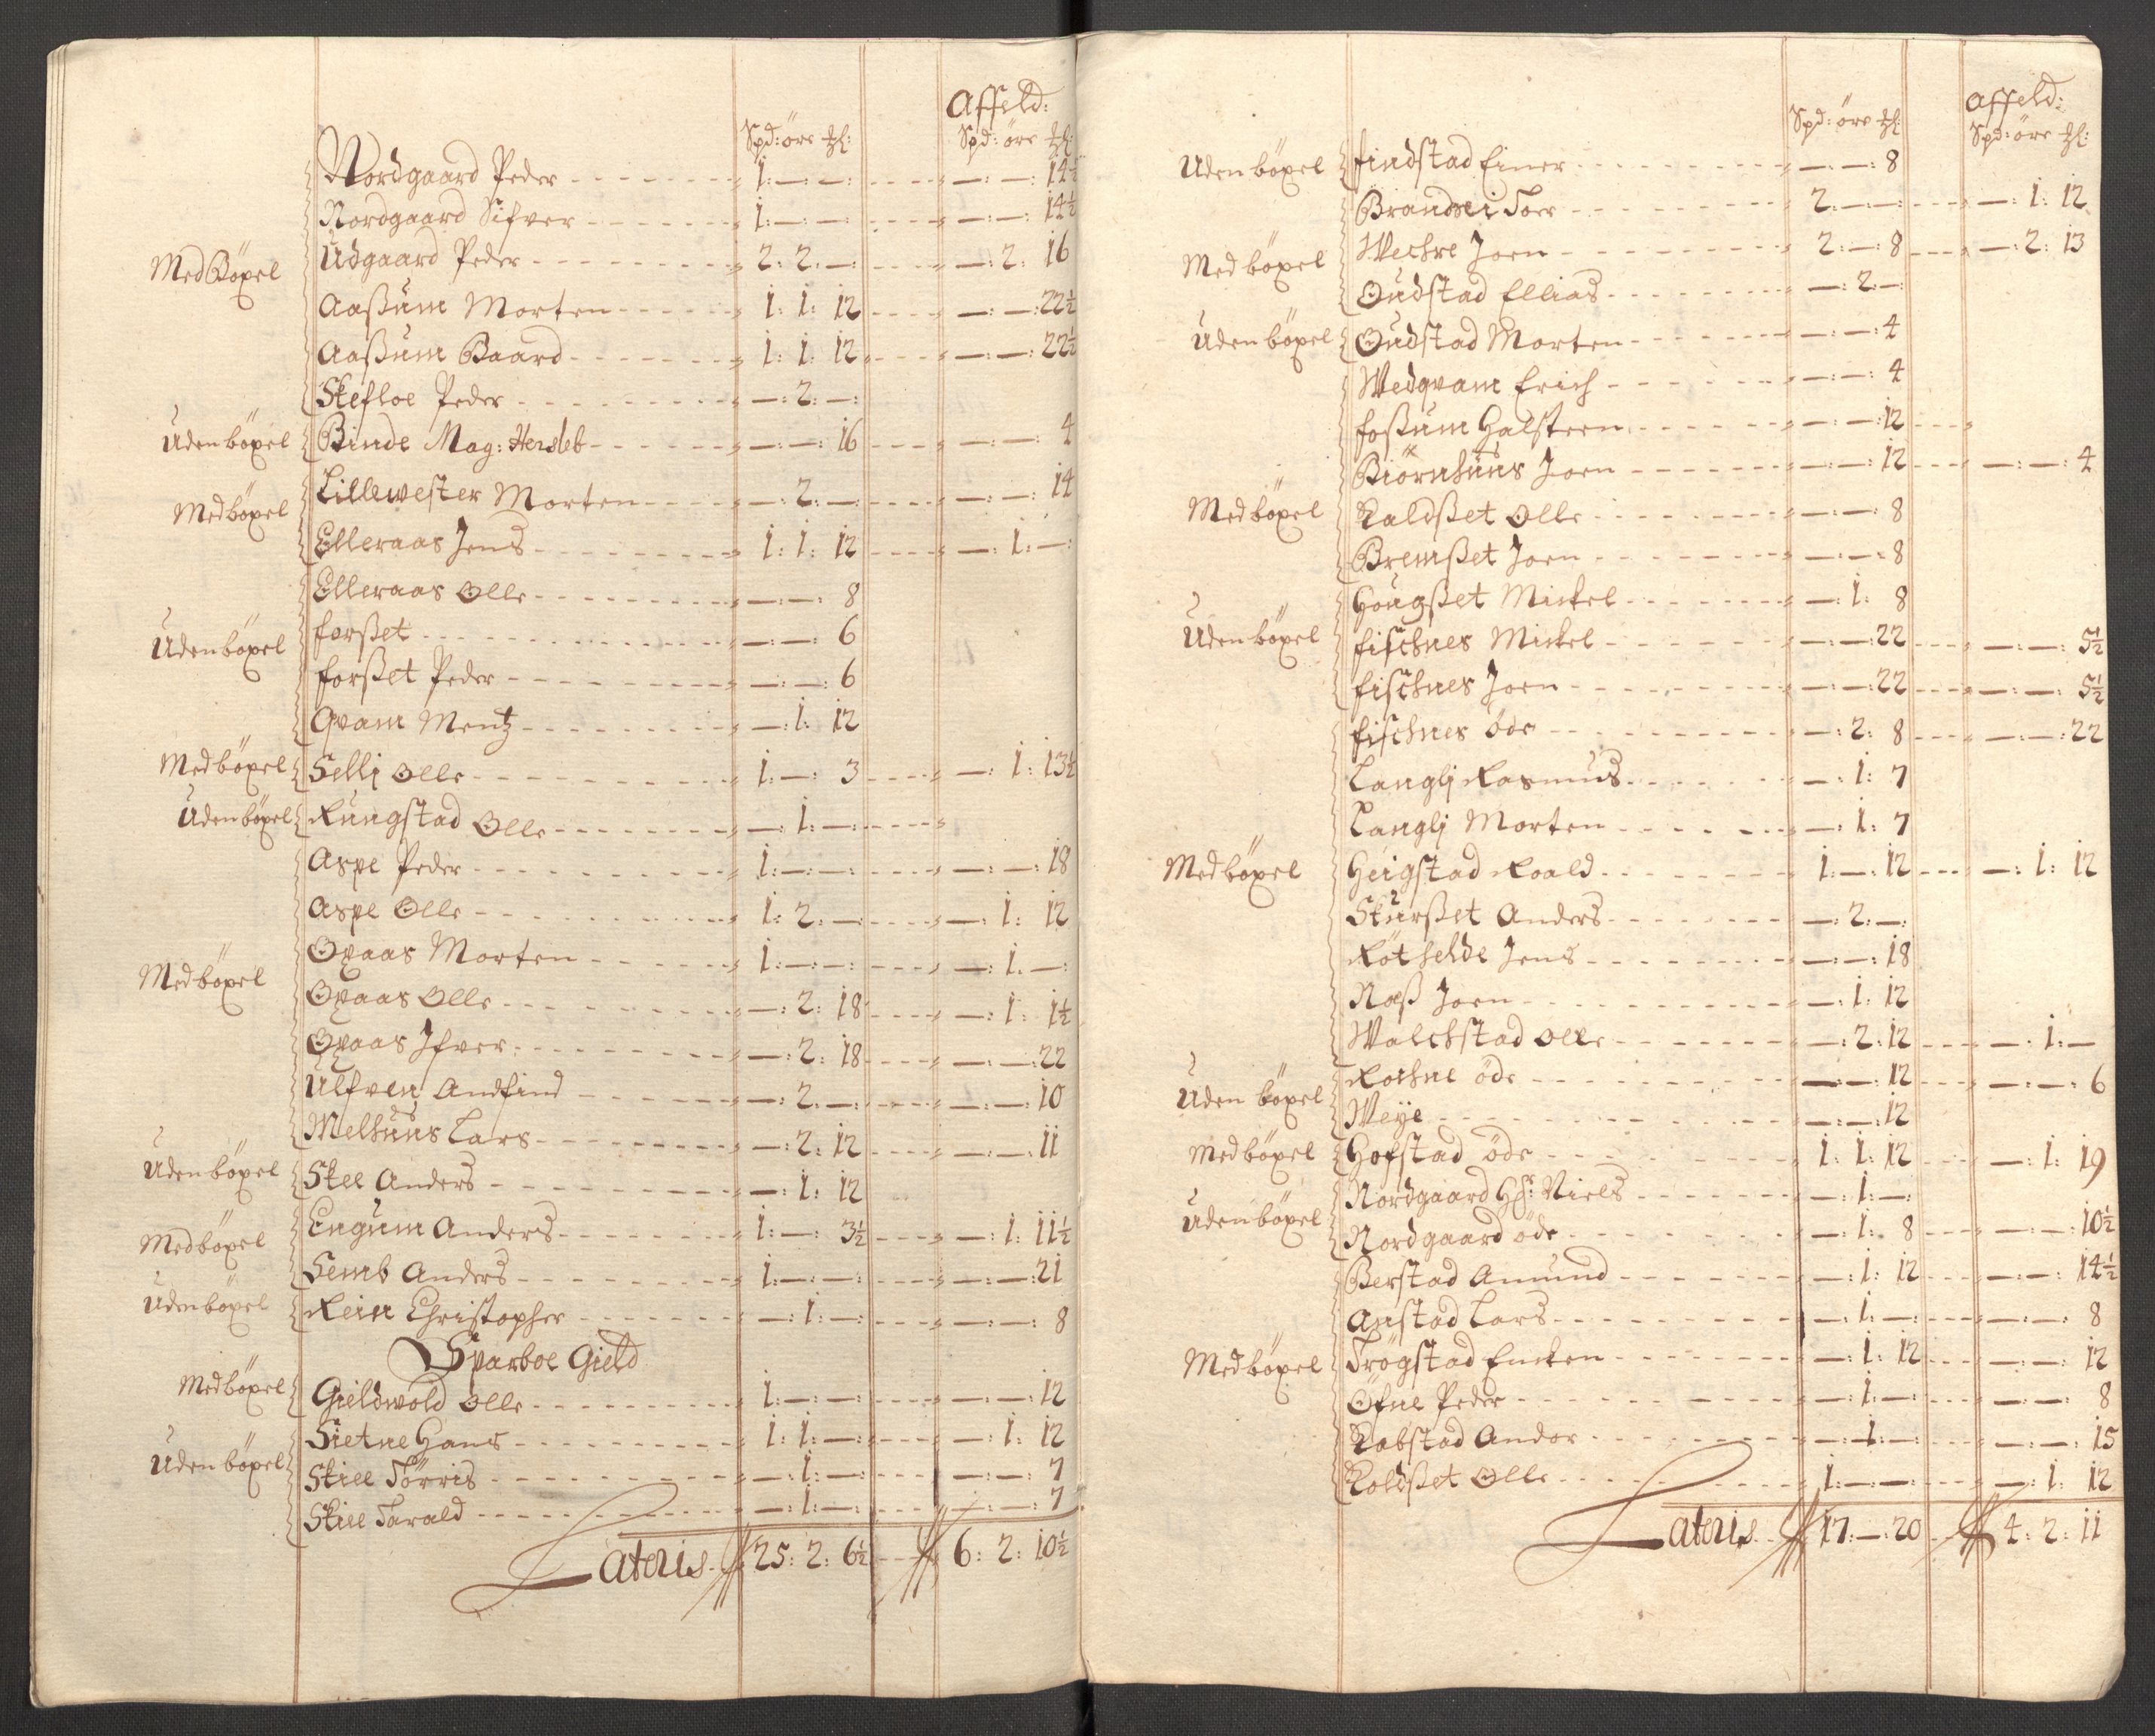 Affeld:
Spd: öre
Spd: öre
Nordgaard Peder 1:—:—: —:—: 14½
Nordgaard Sifver 1:—:—: —:—: 14½
Med Böxel Udgaard Peder 2: 2:—: —: 2: 16
Aaßum Morten 1: 1: 12 —:—: 22½
Aaßum Baard 1: 1: 12 —:—: 22½
Skefloe Peder —: 2:—:
Uden böxel Binde Mag: Hersleb —:—: 16 —:—: 4
Med böxel Lillewester Morten —: 2:—: —:—: 14
Elleraas Jens 1: 1: 12 —: 1:—:
Elleraas Olle —:—: 8
Uden böxel forßet —:—: 6
forßet Peder —:—: 6
Qvam Mentz —: 1: 12
Med böxel Sellj Olle 1:—: 3 —: 1: 13½
Uden böxel Rungstad Olle —: 1:—:
Aspe Peder 1:—:—: —:—: 18
Aspe Olle 1: 2:—: —: 1: 12
Med böxel Opaas Morten 1:—:—: —: 1:—:
Opaas Olle —: 2: 18 —: 1: 1½
Opaas Ifver —: 2: 18 —:—: 22
Ulfven Andfind —: 2:—: —:—: 10
Melhuus Lars —: 2: 12 —:—: 11
Uden böxel Stee Anders —: 1: 12
Med böxel Engum Anders 1:—: 3½ —: 1: 11½
Semb Anders 1:—:—: —:—: 21
Uden böxel Rein Christopher —: 1:—: —:—: 8
Sparboe Gield
Med böxel Gieldwold Olle 1:—:—: —:—: 12
Uden böxel Sietne Hans 1: 1:—: —: 1: 12
Stiee Törris —: 1:—: —:—: 7
Stiee Tarald —: 1:—: —:—: 7
Lateris 25: 2: 6½ 6: 2: 10½
Affeld:
Spd: öre
Spd: öre
Uden böxel findstad Einer —:—: 8
Brandsei Toer 2:—:—: —: 1: 12
Med böxel Wechre Joen 2:—: 8 —: 2: 13
Oudstad Ellias —: 2:—:
Uden böxel Oudstad Morten —:—: 4
Wedqvam Erich —:—: 4
foßum Halsteen —:—: 12
Biörnhuus Joen —:—: 12 —:—: 4
Med böxel Kaldßet Olle —:—: 8
Bremßet Joen —:—: 8
Hougßet Mickel —: 1: 8
Uden böxel fischnes Mickel —:—: 22 —:—: 5½
fischnes Joen —:—: 22 —:—: 5½
fischnes öde —: 2: 8 —:—: 22
Langlj Rasmus —: 1: 7
Langlj Morten —: 1: 7
Med böxel Heigstad Roald 1:—: 12 —: 1: 12
Skurßet Anders —: 2:—:
Röthelde Jens —:—: 18
Næß Joen —: 1: 12
Walchstad Olle —: 2: 12 —: 1:—
Uden böxel Rochne öde —:—: 12 —:—: 6
Weye —:—: 12
Med böxel Hofstad öde 1: 1: 12 —: 1: 19
Uden böxel Nordgaard Hr: Niels —: 1:—:
Nordgaard öde —: 1: 8 —:—: 10½
Berstad Amund —: 1: 12 —:—: 14½
Anstad Lars —: 1:—: —:—: 8
Med böxel Trögstad Encken —: 1: 12 —:—: 12
Öfne Peder —: 1:—: —:—: 8
Kabstad Andor —: 1:—: —:—: 15
Koldßet Olle 1:—:—: —: 1: 12
Lateris 17:—: 20 4: 2: 11